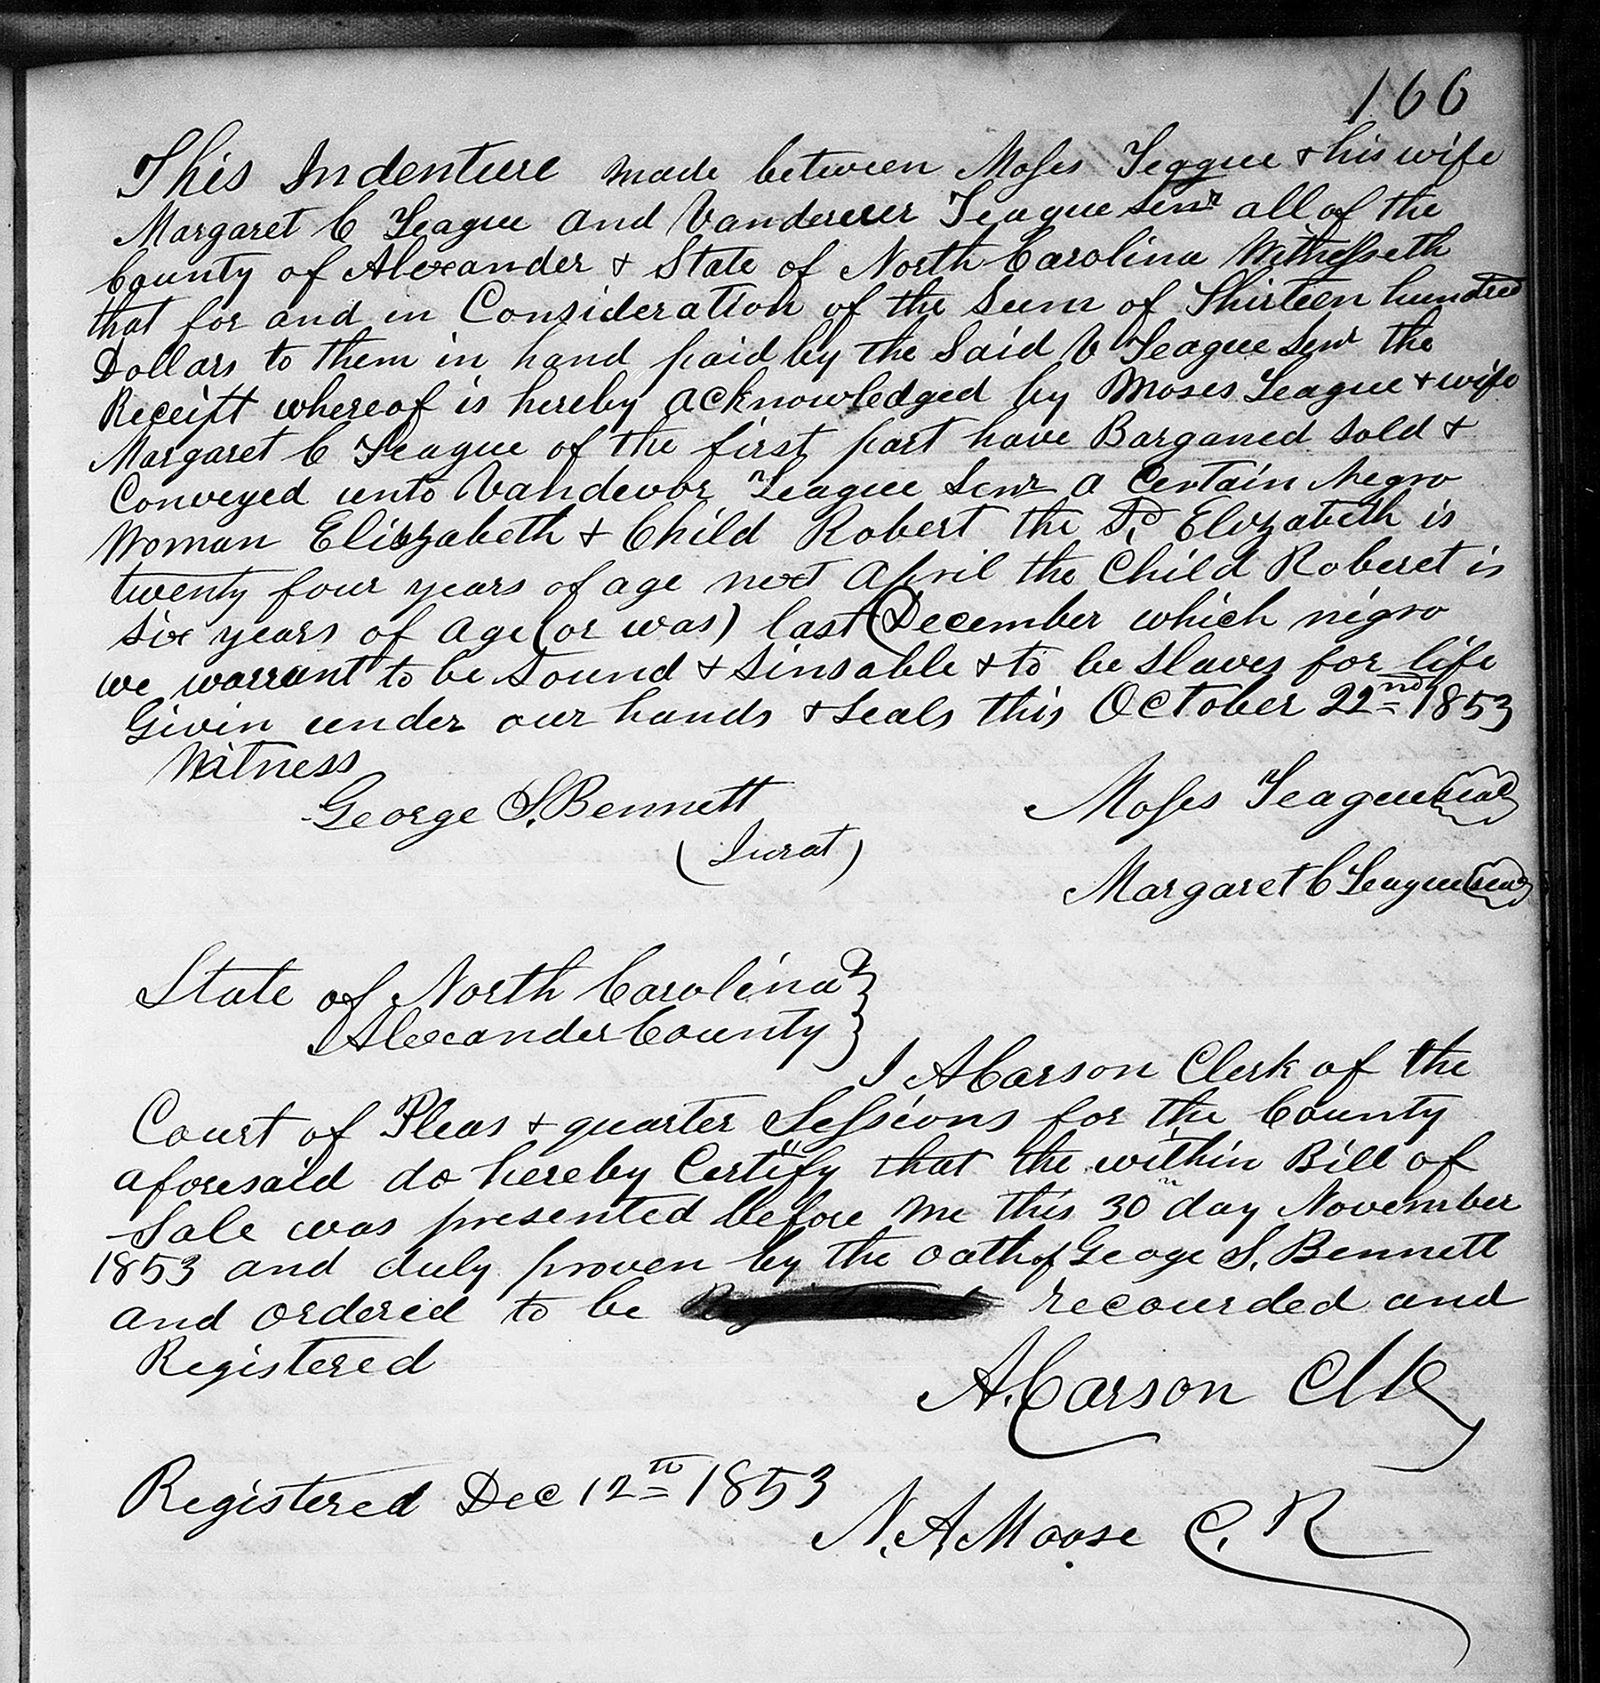 166
This Indenture made between Moses Teague & his wife
Margaret C Teague and Vanderver Teague Senr all of the
County of Alexander & State of North Carolina Witnesseth
that for and in Consideration of the Sum of Thirteen hundred
Dollars to them in hand paid by the Said V Teague Senr the
Receipt whereof is hereby acknowledged by Moses Teague & wife
Margaret C Teague of the first part have Barganed Sold &
Conveyed unto Vandevor Teague Senr a Certain Negro
Woman Elizabeth & Child Robert the Sd. Elizabeth is
twenty four years of age next April the Child Roberet is
six years of age (or was) last (December which nigro
we warrant to be Sound & Sinsable & to be Slaves for life
Givin under our hands & Seals this October 22nd 1853
Witness
George S. Bennett
(Jurat)
Moses Teague Seal
Margaret C Teague Seal
State of North Carolina
Alexander County
I A Carson Clerk of the
Court of Pleas & quarter Sessions for the County
aforesaid do hereby Certify that the within Bill of
Sale was presented before me this 30th day November
1853 and duly proven by the oath of Geoge S. Bennett
and ordered to be recourded and
Registered
A. Carson Clk
Registered Dec 12th 1853
N. A Moose C. R